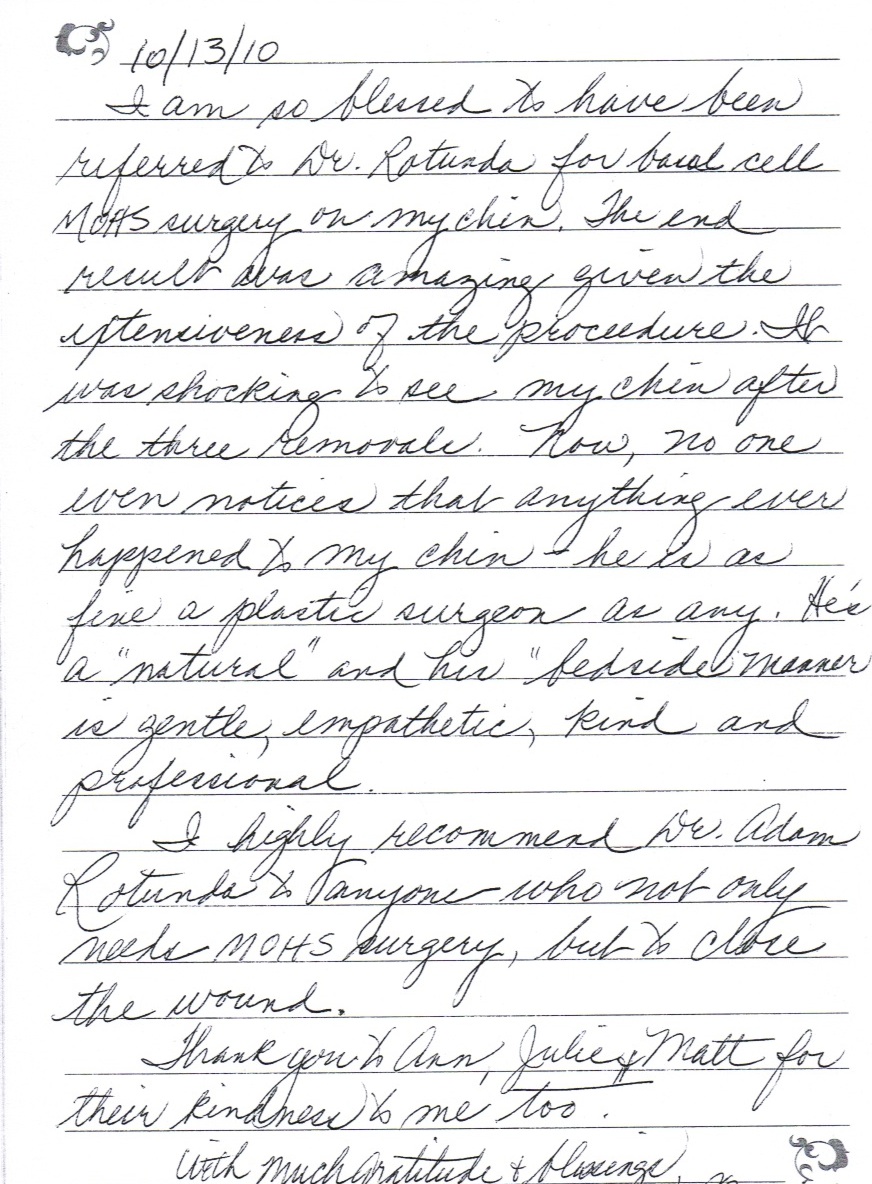 10/13/10
I am so blessed to have been
referred to Dr. Rotunda for basal cell
MOHS surgery on my chin. The end
result was amazing given the
extensiveness of the proceedure. It
was shocking to see my chin after
the three removals. Now, no one
even notices that anything ever
happened to my chin - he is as
fine a plastic surgeon as any. He's
a "natural" and his "bedside manner
is gentle, empathetic, kind and
professional.
I highly recommend Dr. Adam
Rotunda to anyone who not only
needs MOHS surgery, but to close
the wound.
Thank you to Ann, Julie & Matt for
their kindness to me too.
With much gratitude & blessings,